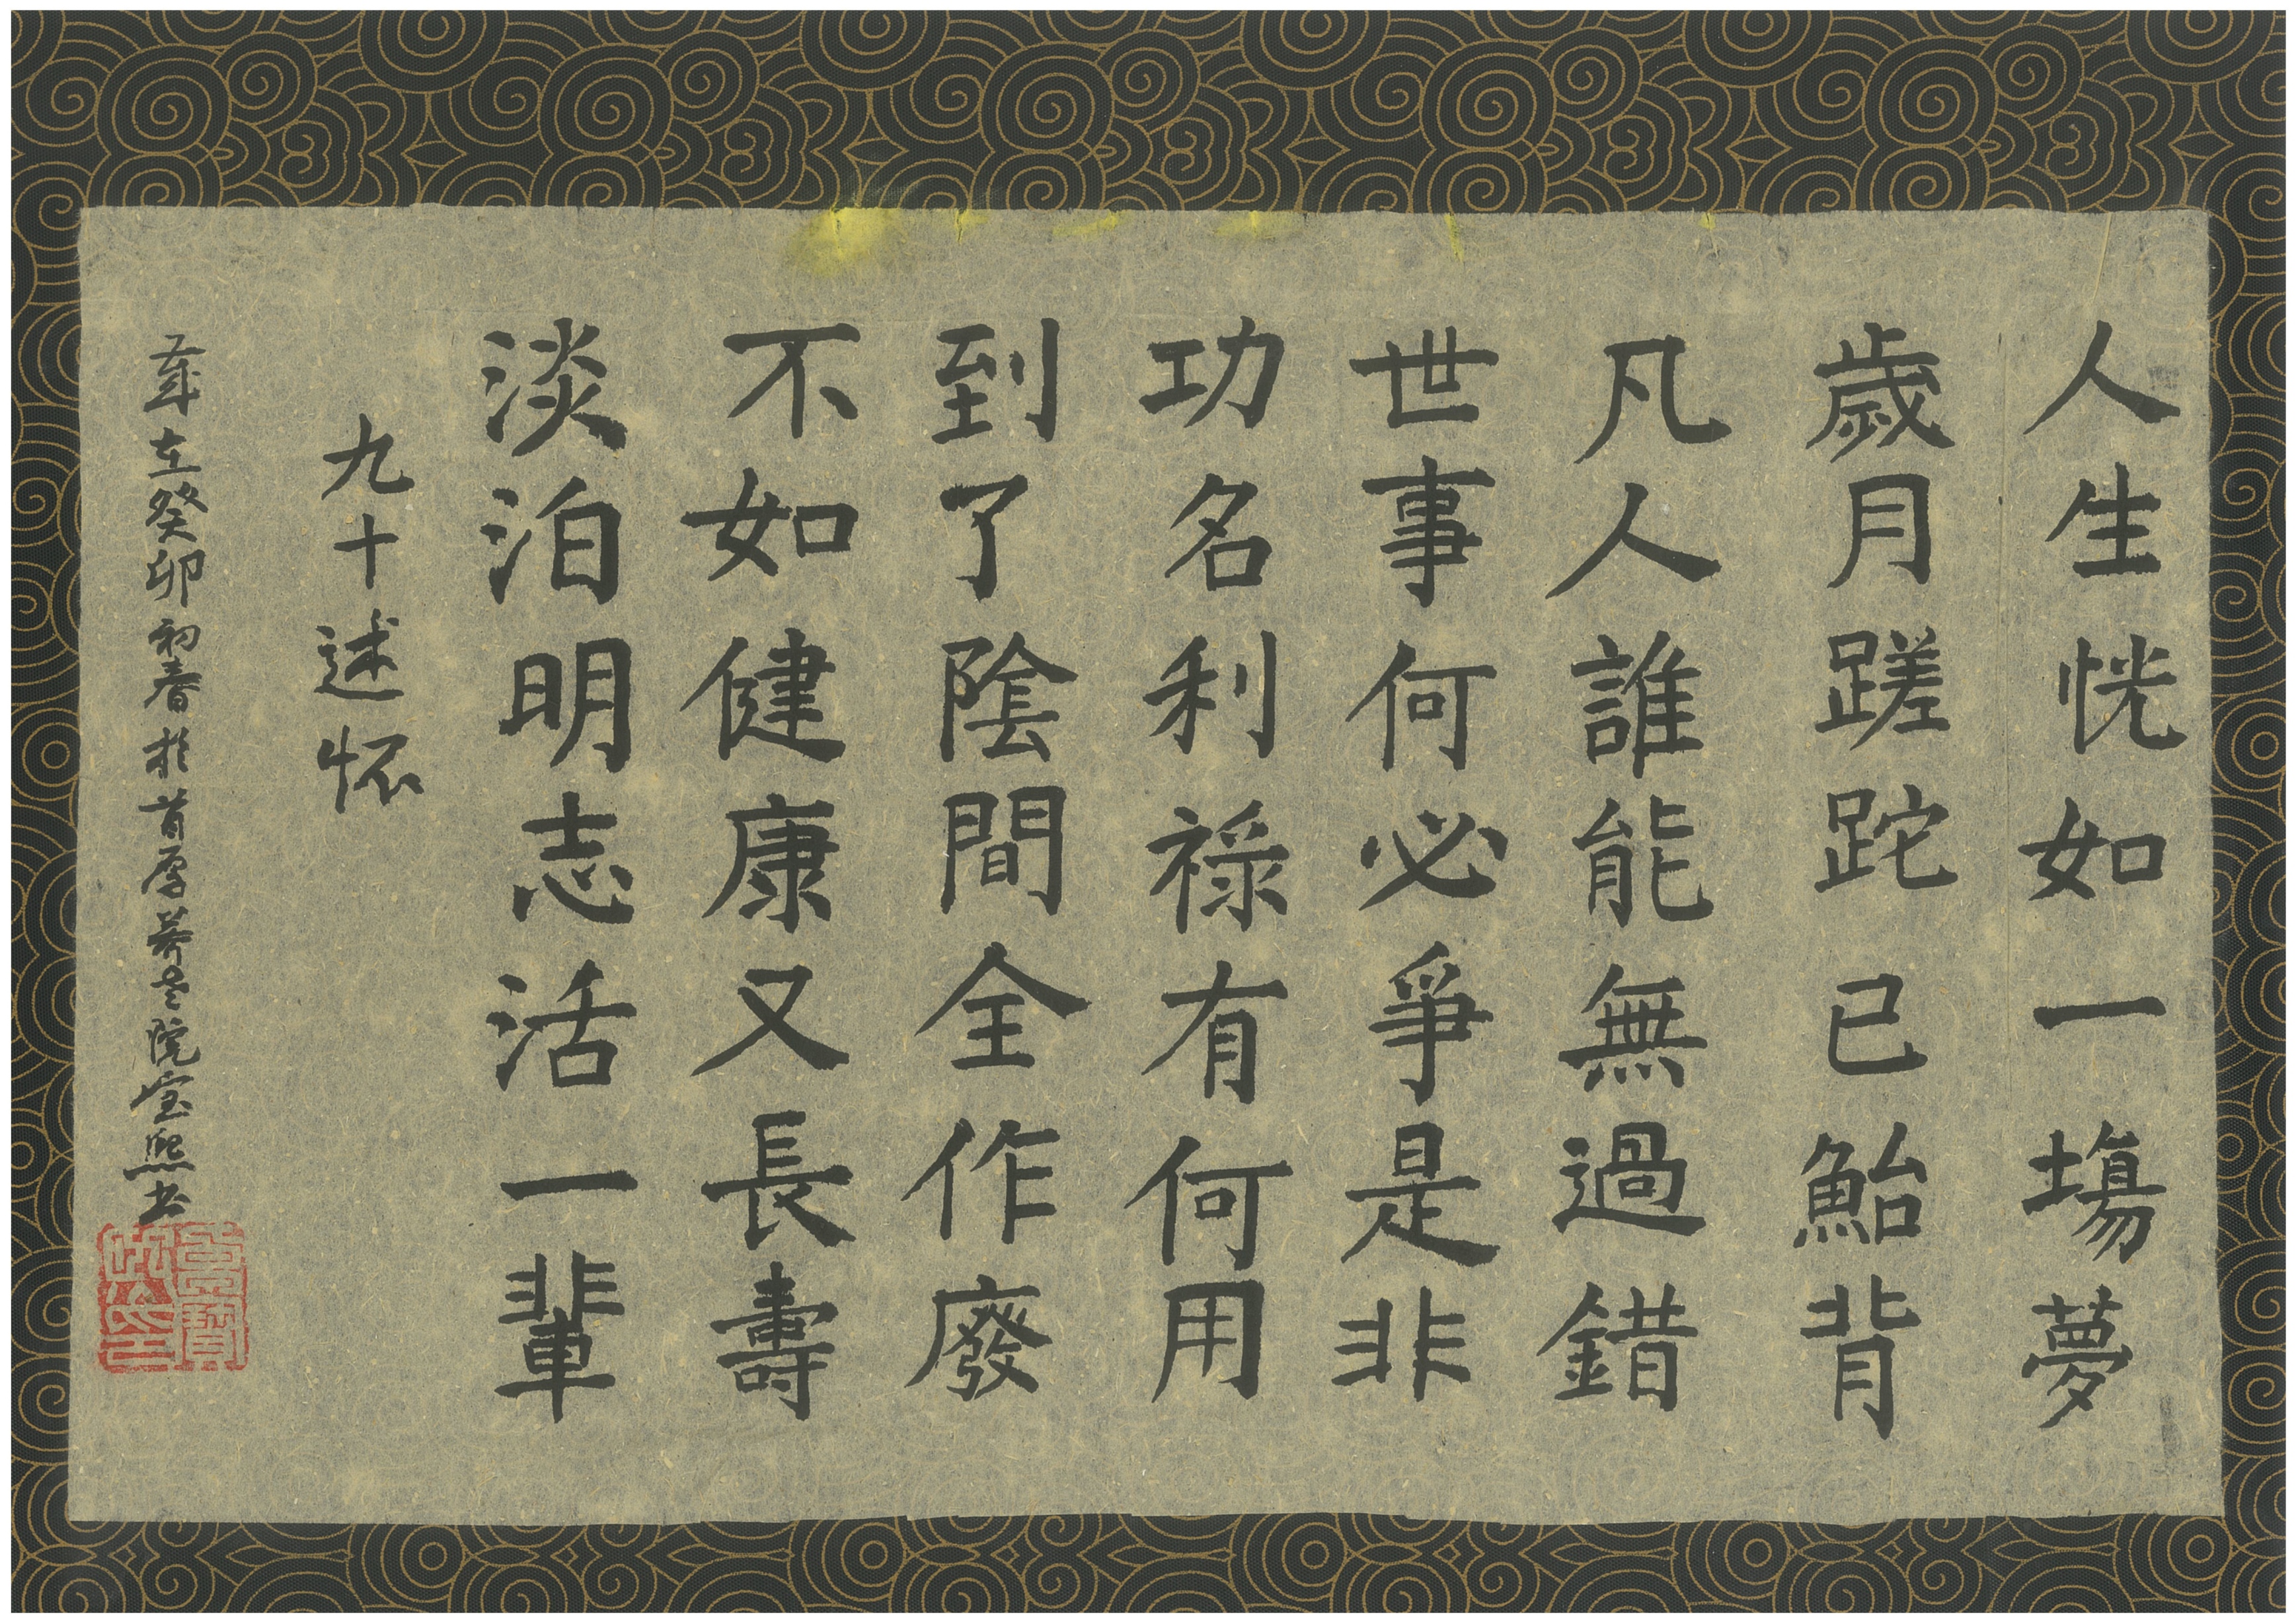 人生恍如一塲夢
歲月蹉跎已鮐背
凡人誰能無過錯
世事何必爭是非
功名利祿有何用
到了陰間全作廢
不如健康又長壽
淡泊明志活一輩
九十述怀
歲在癸卯初春於首厚养老院宝熙书